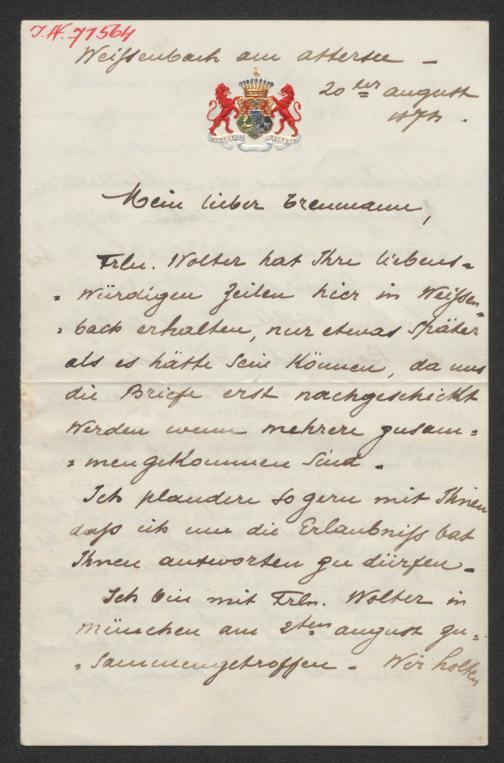 J.N. 77564
Weißenbach am attersee -
20ter august
Mein lieber
Frln. Wolter hat Ihre liebens=
= würdigen Zeilen hier in Weißen
= bach erhalten, nur etwas Später
als es hätte Sein Können, da uns
die Briefe erst nachgeschickt
Werden wenn mehrere zusam=
= mengeKommen Sind.
Ich plaudere So gern mit Ihnen
daß ich um die Erlaubniß bat
Ihnen antworten zu dürfen -
Ich bin mit Frln. Wolter in
München am 2ten august zu=
= Sammengetroffen - Wir holten